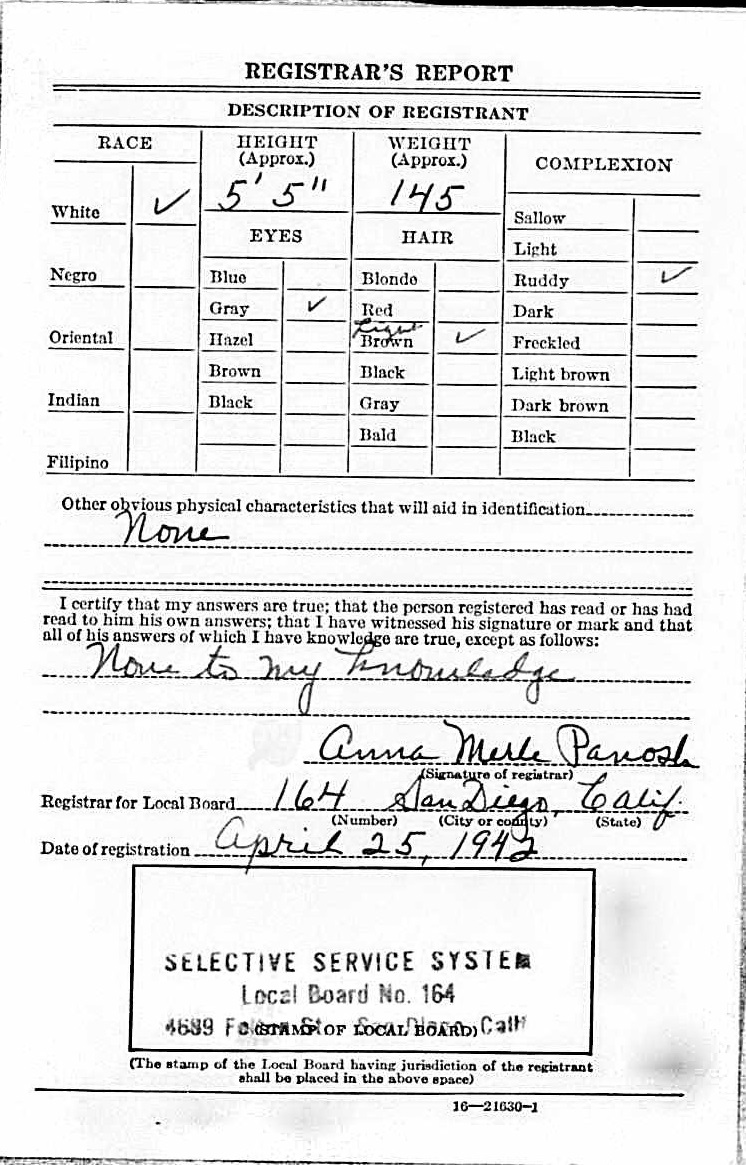 REGISTRAR'S REPORT
DESCRIPTION OF REGISTRANT
RACE
White ✓
Negro
Oriental
Indian
Filipino
HEIGHT
(Approx.)
5' 5"
WEIGHT
(Approx.)
145
EYES
Blue
Gray ✓
Hazel
Brown
Black
HAIR
Blonde
Red
Light
Brown ✓
Black
Gray
Bald
COMPLEXION
Sallow
Light
Ruddy ✓
Dark
Freckled
Light brown
Dark brown
Black
Other obvious physical characteristics that will aid in identification
None
I certify that my answers are true; that the person registered has read or has had
read to him his own answers; that I have witnessed his signature or mark and that
all of his answers of which I have knowledge are true, except as follows:
None to my knowledge
Anna Merle Panosh
(Signature of registrar)
Registrar for Local Board 164 San Diego, Calif.
(Number) (City or county) (State)
Date of registration April 25, 1942
SELECTIVE SERVICE SYSTEM
Local Board No. 164
4689 St. San Diego, Calif
(STAMP OF LOCAL BOARD)
(The stamp of the Local Board having jurisdiction of the registrant
shall be placed in the above space)
16—21630-1